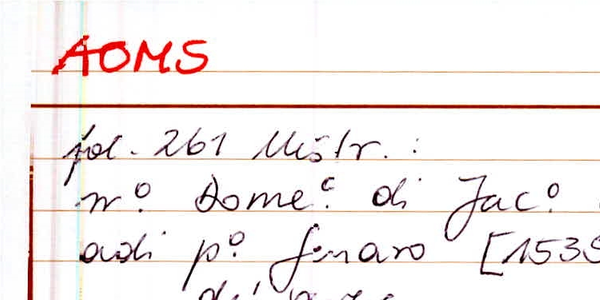 AOMS
fol. 261 Mistr. :
m.º Dome.c di Jac.º
adi p.º genaro [1535
di